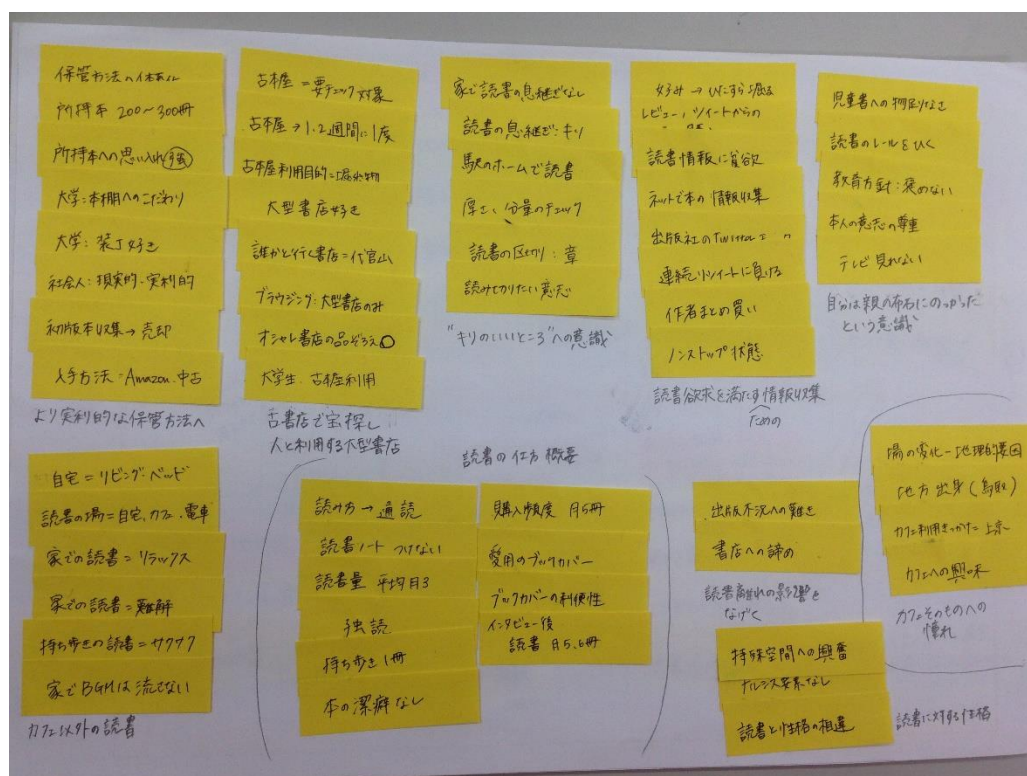 保管方法への
所持本 200〜300冊
所持本への思い入れ強
大学:本棚へのこだわり
大学:装丁好き
社会人:現実的・実利的
初版本収集→売却
入手方法=Amazon.中古
より実利的な保管方法へ
古本屋=要チェック対象
古本屋→1.2週間に1度
古本屋利用目的=掘出物
大型書店好き
誰かと行く書店=代官山
ブラウジング:大型書店のみ
オシャレ書店の品ぞろえ○
大学生.古本屋利用
古書店で宝探し
人と利用する大型書店
家で読書の息継ぎなし
読書の息継ぎ:キリ
駅のホームで読書
厚さ、分量のチェック
読書の区切り:章
読み切りたい意志
"キリのいいところ"への意識
好み→ひたすら掘る
レビュー,ツイートからの
読書情報に貪欲
ネットで本の情報収集
出版社のTwitter
連続リツイートに負ける
作者まとめ買い
ノンストップ状態
読書欲求を満たすための情報収集
児童書への物足りなさ
読書のレールをひく
教育方針:褒めない
本人の意志の尊重
テレビ見れない
自分は親の布石にのっかった
という意識
自宅=リビング・ベッド
読書の場=自宅.カフェ.電車
家での読書=リラックス
家での読書=難解
持ち歩きの読書=サクサク
家でBGMは流さない
カフェ以外の読書
読書の仕方 概要
読み方→通読
読書ノートつけない
読書量 平均月3
独読
持ち歩き1冊
本の潔癖なし
購入頻度 月5冊
愛用のブックカバー
ブックカバーの利便性
インタビュー後
読書 月5.6冊
出版不況への嘆き
書店への諦め
読書離れの影響を
なげく
特殊空間への興奮
ナルシス要素なし
読書と性格の相違
読書に対する性格
場の変化-地理的要因
地方出身(鳥取)
カフェ利用きっかけ=上京
カフェへの興味
カフェそのものへの
憧れ